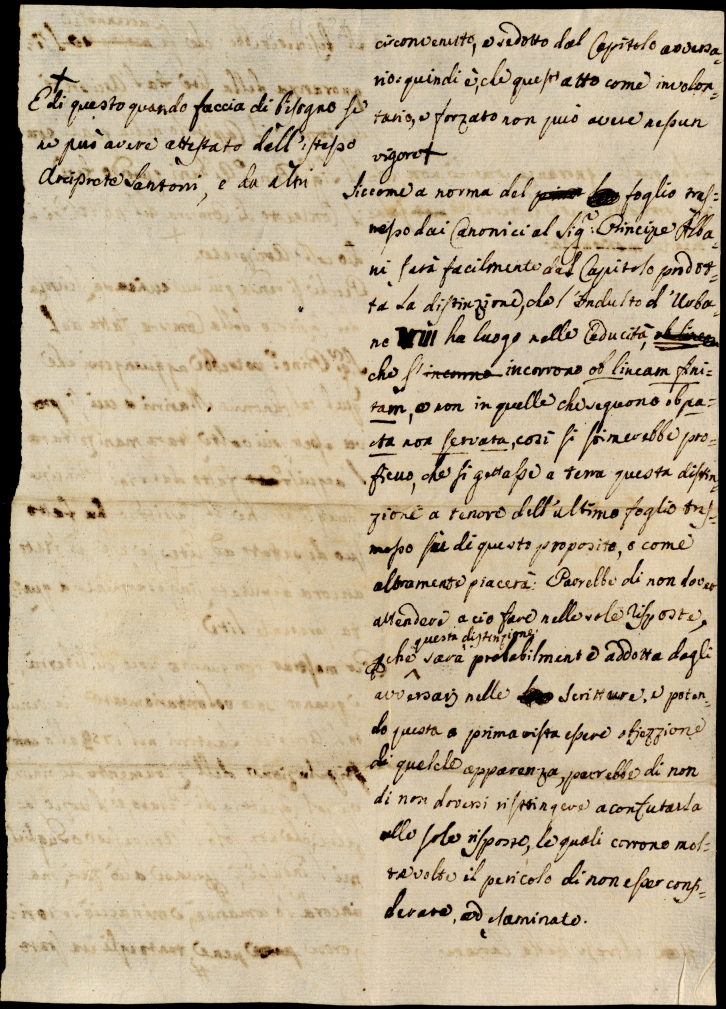 +
E di questo quando faccia di bisogno se
ne può avere attestato dell'istesso
Arciprete Santoni, e da altri
circonvenuto, e sedotto dal Capitolo avversa-
rio: quindi è, che quest'atto come involon-
tario, e forzato non può avere nessun
vigore +
Siccome a norma del foglio tras-
messo dai Canonici al Sig.r Principe Alba-
ni sarà facilmente dal Capitolo prodot-
ta la distinzione, che l'Indulto d'Urba-
no VIII ha luogo nelle Caducità, ob lineam
che s' incorrono ob lineam fini-
tam, e non in quelle che seguono ob pa-
cta non servata, così si stimerebbe pro-
ficuo, che si gettasse a terra questa distin-
zione a tenore dell'ultimo foglio tras-
messo su di questo proposito, o come
altramente piacerà: Parrebbe di non dover
attendere a ciò fare nelle sole risposte,
questa distinzione
perché sarà probabilmente addotta dagli
avversarj nelle Scritture, e poten-
do questa a prima vista essere objezzione
di qualche apparenza, parrebbe di non
di non doversi ristringere a confutarla
alle sole risposte, le quali corrono mol-
te volte il pericolo di non esser consi-
derate, ed esaminate.